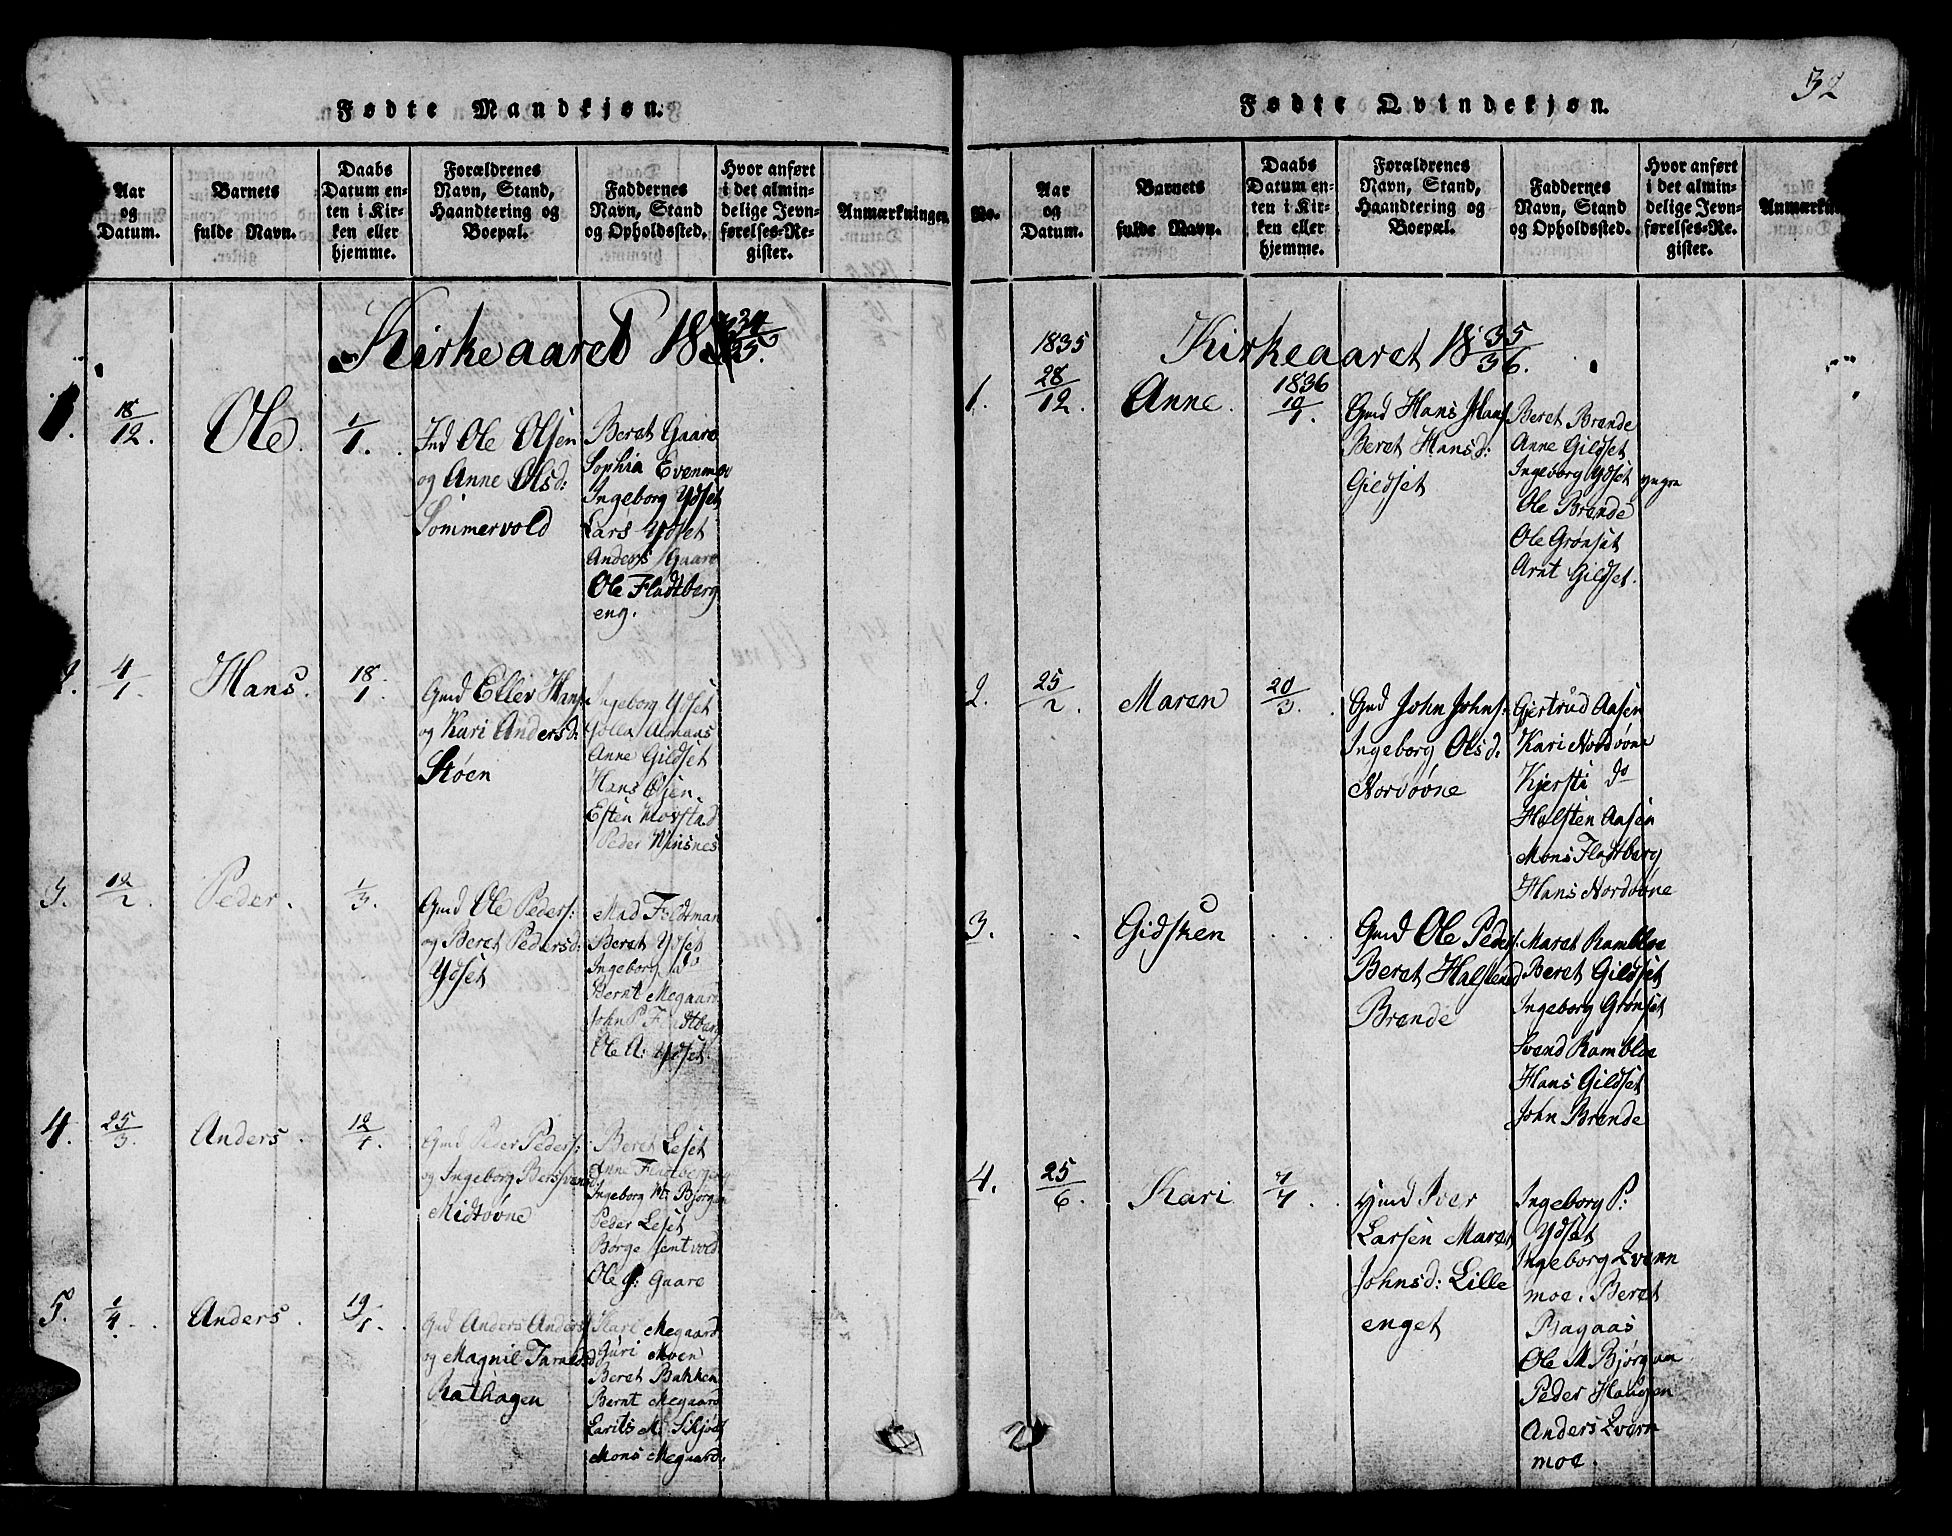 32
Fødte Mandkjøn.
Aar og Datum.
Barnets fulde Navn.
Daabs Datum enten i Kirken eller hjemme.
Forældrenes Navn, Stand, Haandtering og Boepæl.
Faddernes Navn, Stand og Opholdssted.
Hvor anført i det almindelige Jevnførelses-Register.
Anmærkninger.
Kirkeaaret 18 34/35.
1.
18/12.
Ole
1/1.
Ind Ole Olsen
og Anne Olsd:
Sommervold
Beret Gaare
Sophia Evenmoe
Ingeborg Ydset
Lars Ydset
Anders Gaare
Ole Fladtberg
eng.
4/1.
Hans.
18/1.
Gmd Ellev Hans
og Kari Andersd:
Støen
Ingeborg Ydset
Almaas
Anne Gildset
Hans Olsen.
Esten Hovstad
Peder Vinsnes
3.
12/2.
Peder.
1/3.
Gmd Ole Peders:
og Beret Pedersd:
Ydset
Mad Feldtman
Beret Ydset
Ingeborg do
Bernt Megaard
John P Fladtberg
Ole A: Ydset.
4.
25/3.
Anders.
12/4.
Gmd Peder Peders:
og Ingeborg
Midtøvne
Beret Leset
Anne Fladtbergeng
Ingeborg M. Bjørgen
Peder Leset
Børge
Ole J: Gaare
5.
1/4.
Anders.
19/4.
Gmd Anders Anders
og Magnil
Rathagen
Kari Megaard
Guri Moen
Beret Bakken
Bernt Megaard
Larits M.
Mons Megaard.
Fødte Qvindekjøn.
No.
Aar og Datum.
Barnets fulde Navn.
Daabs Datum enten i Kirken eller hjemme.
Forældrenes Navn, Stand, Haandtering og Boepæl.
Faddernes Navn, Stand og Opholdssted.
Hvor anført i det almindelige Jevnførelses-Register.
Kirkeaaret 18 35/36.
1.
1835
28/12.
Anne.
1836
10/1.
Gmd Hans Hans
Beret Hansd:
Gildset
Beret Brende
Anne Gildset
Ingeborg Ydset yngre
Ole Brende
Ole Grønset
Arnt Gildset.
2.
25/2.
Maren
20/3.
Gmd John Johns:
Ingeborg Olsd:
Nordøvne
Gjertrud Aasen
Kari Nordøvne
Kjersti do
Halsten Aasen
Mons Fladtberg
Hans Nordøvne
3.
Gidsken
Gmd Ole Peders:
Beret Halstensd
Brende
Maret Rambloe
Beret Gildset
Ingeborg Grønset
Svend Rambloe
Hans Gildset
John Brende
4.
25/6.
Kari
7/7.
Gmd Iver
Larsen Maret
Johnsd: Lille
enget
Ingeborg P:
Ydset
Ingeborg Qvenn
moe. Beret
Bagaas
Ole M. Bjørgen
Peder Haugen
Anders Qvern
moe.